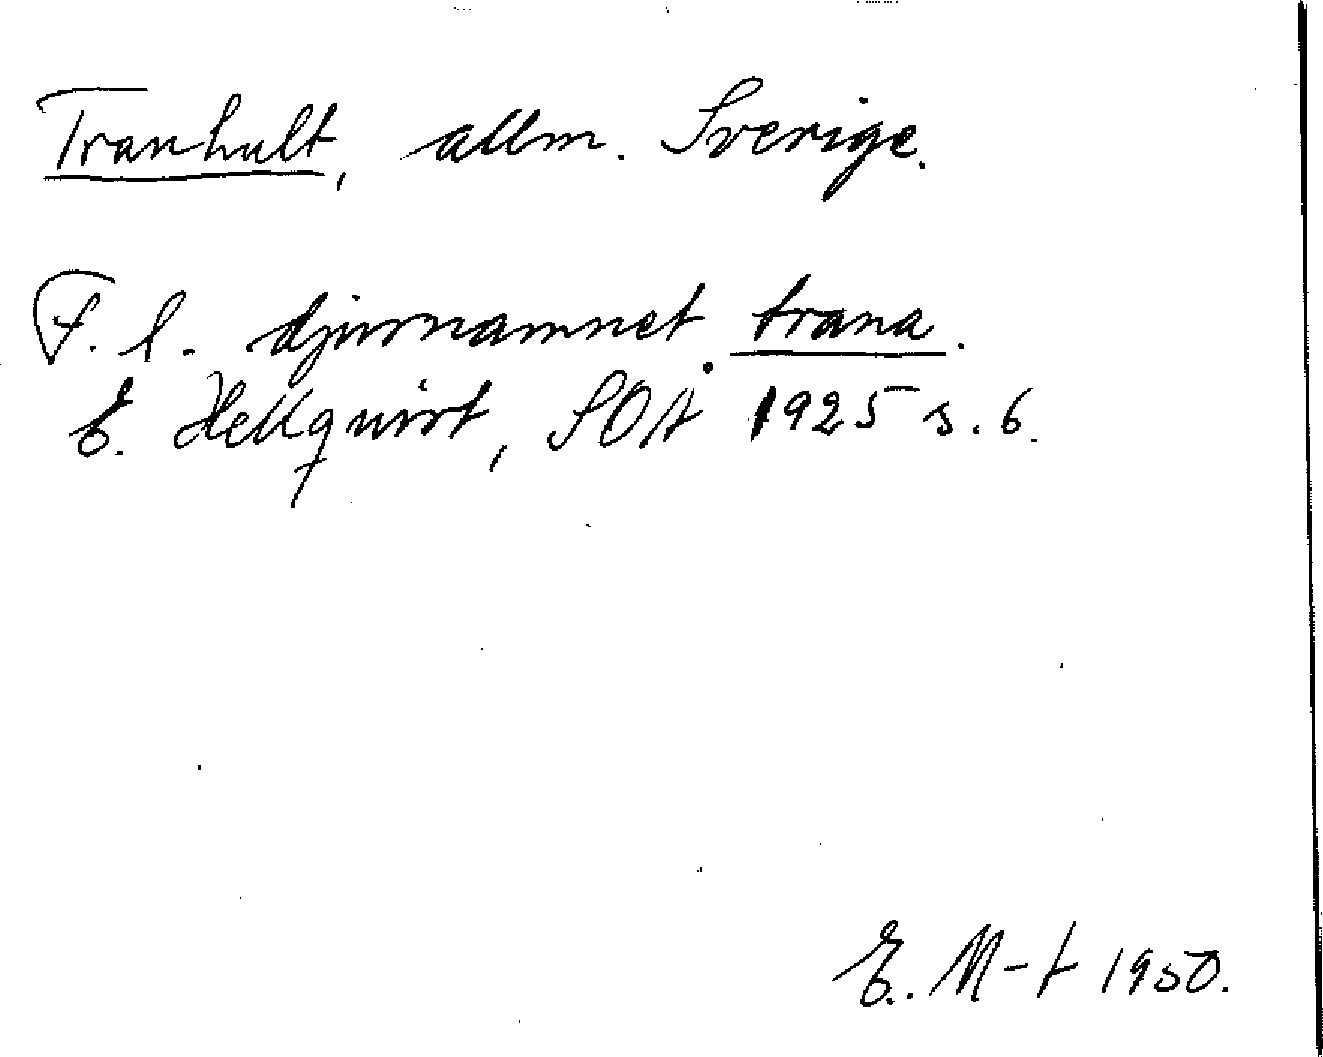 Tranhult, allm. Sverige.
F. l. djurnamnet trana.
E. Hellquist, SOA 1925 s. 6.
E. M-t 1950.